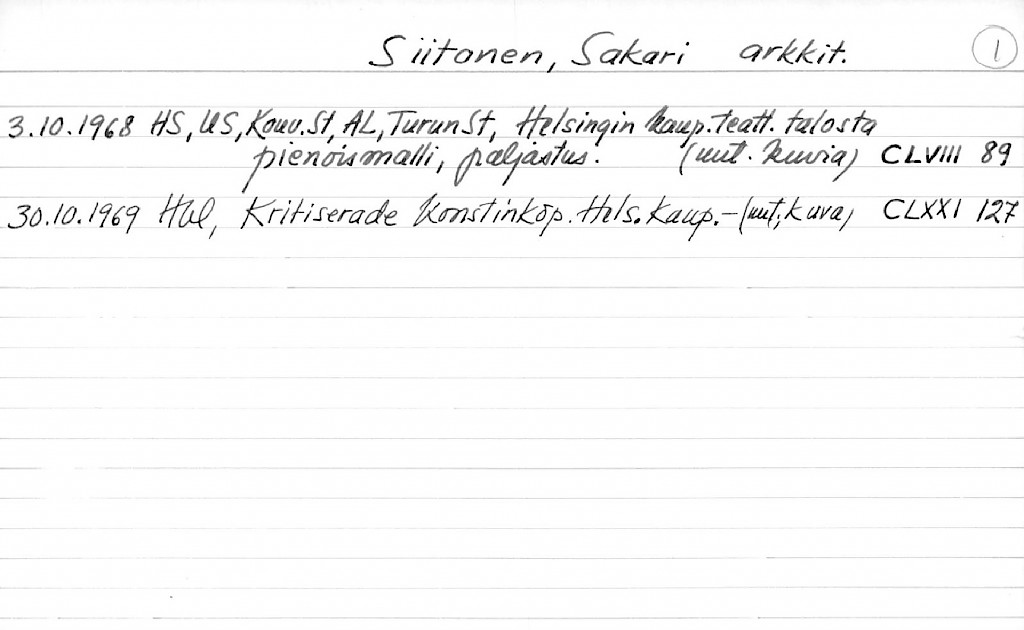 Siitonen, Sakari arkkit. 1
3.10.1968 HS, US, Kouv.St, AL, TurunSt, Helsingin kaup.teatt. talosta
pienoismalli, paljastus. (uut. kuvia) CLVIII 89
30.10.1969 Hbl, Kritiserade Konstinköp. Hels. Kaup.- (uut, kuva) CLXXI 127